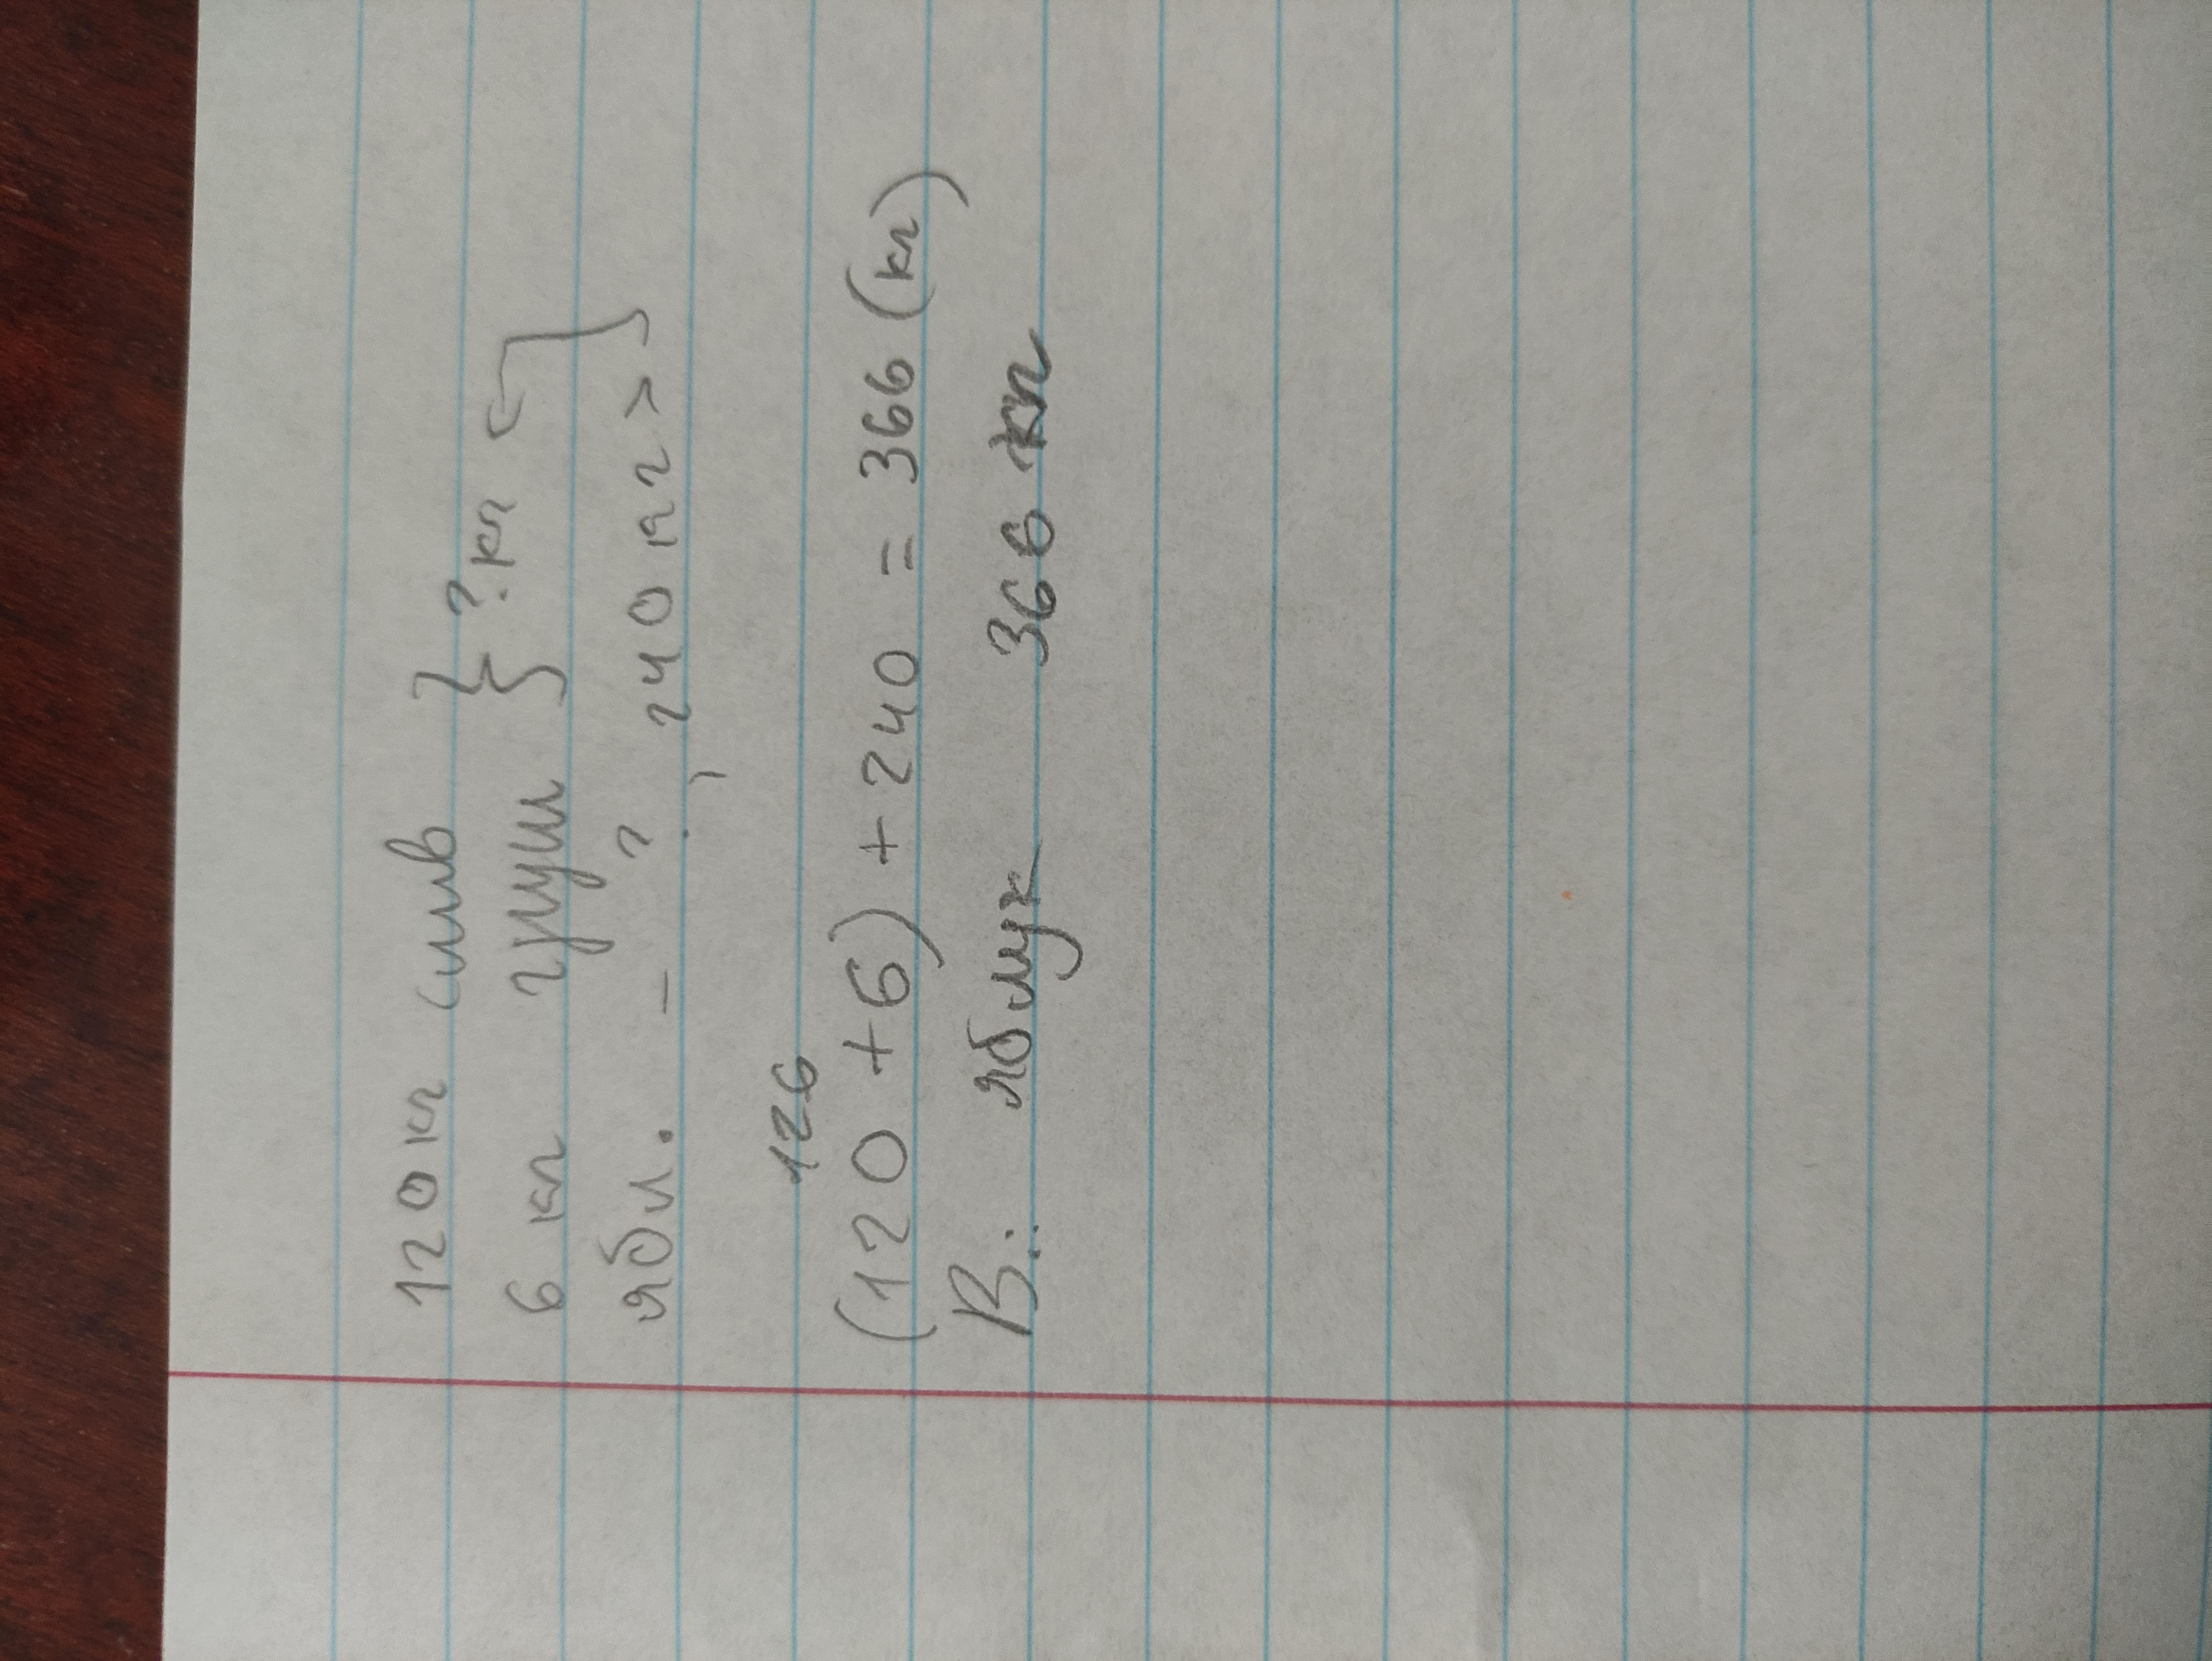 120 кг слив } ? кг
6 кг груш
ябл. – ?, 240 кг >
126
(120 + 6) + 240 = 366 (кг)
В.: яблук 366 кг